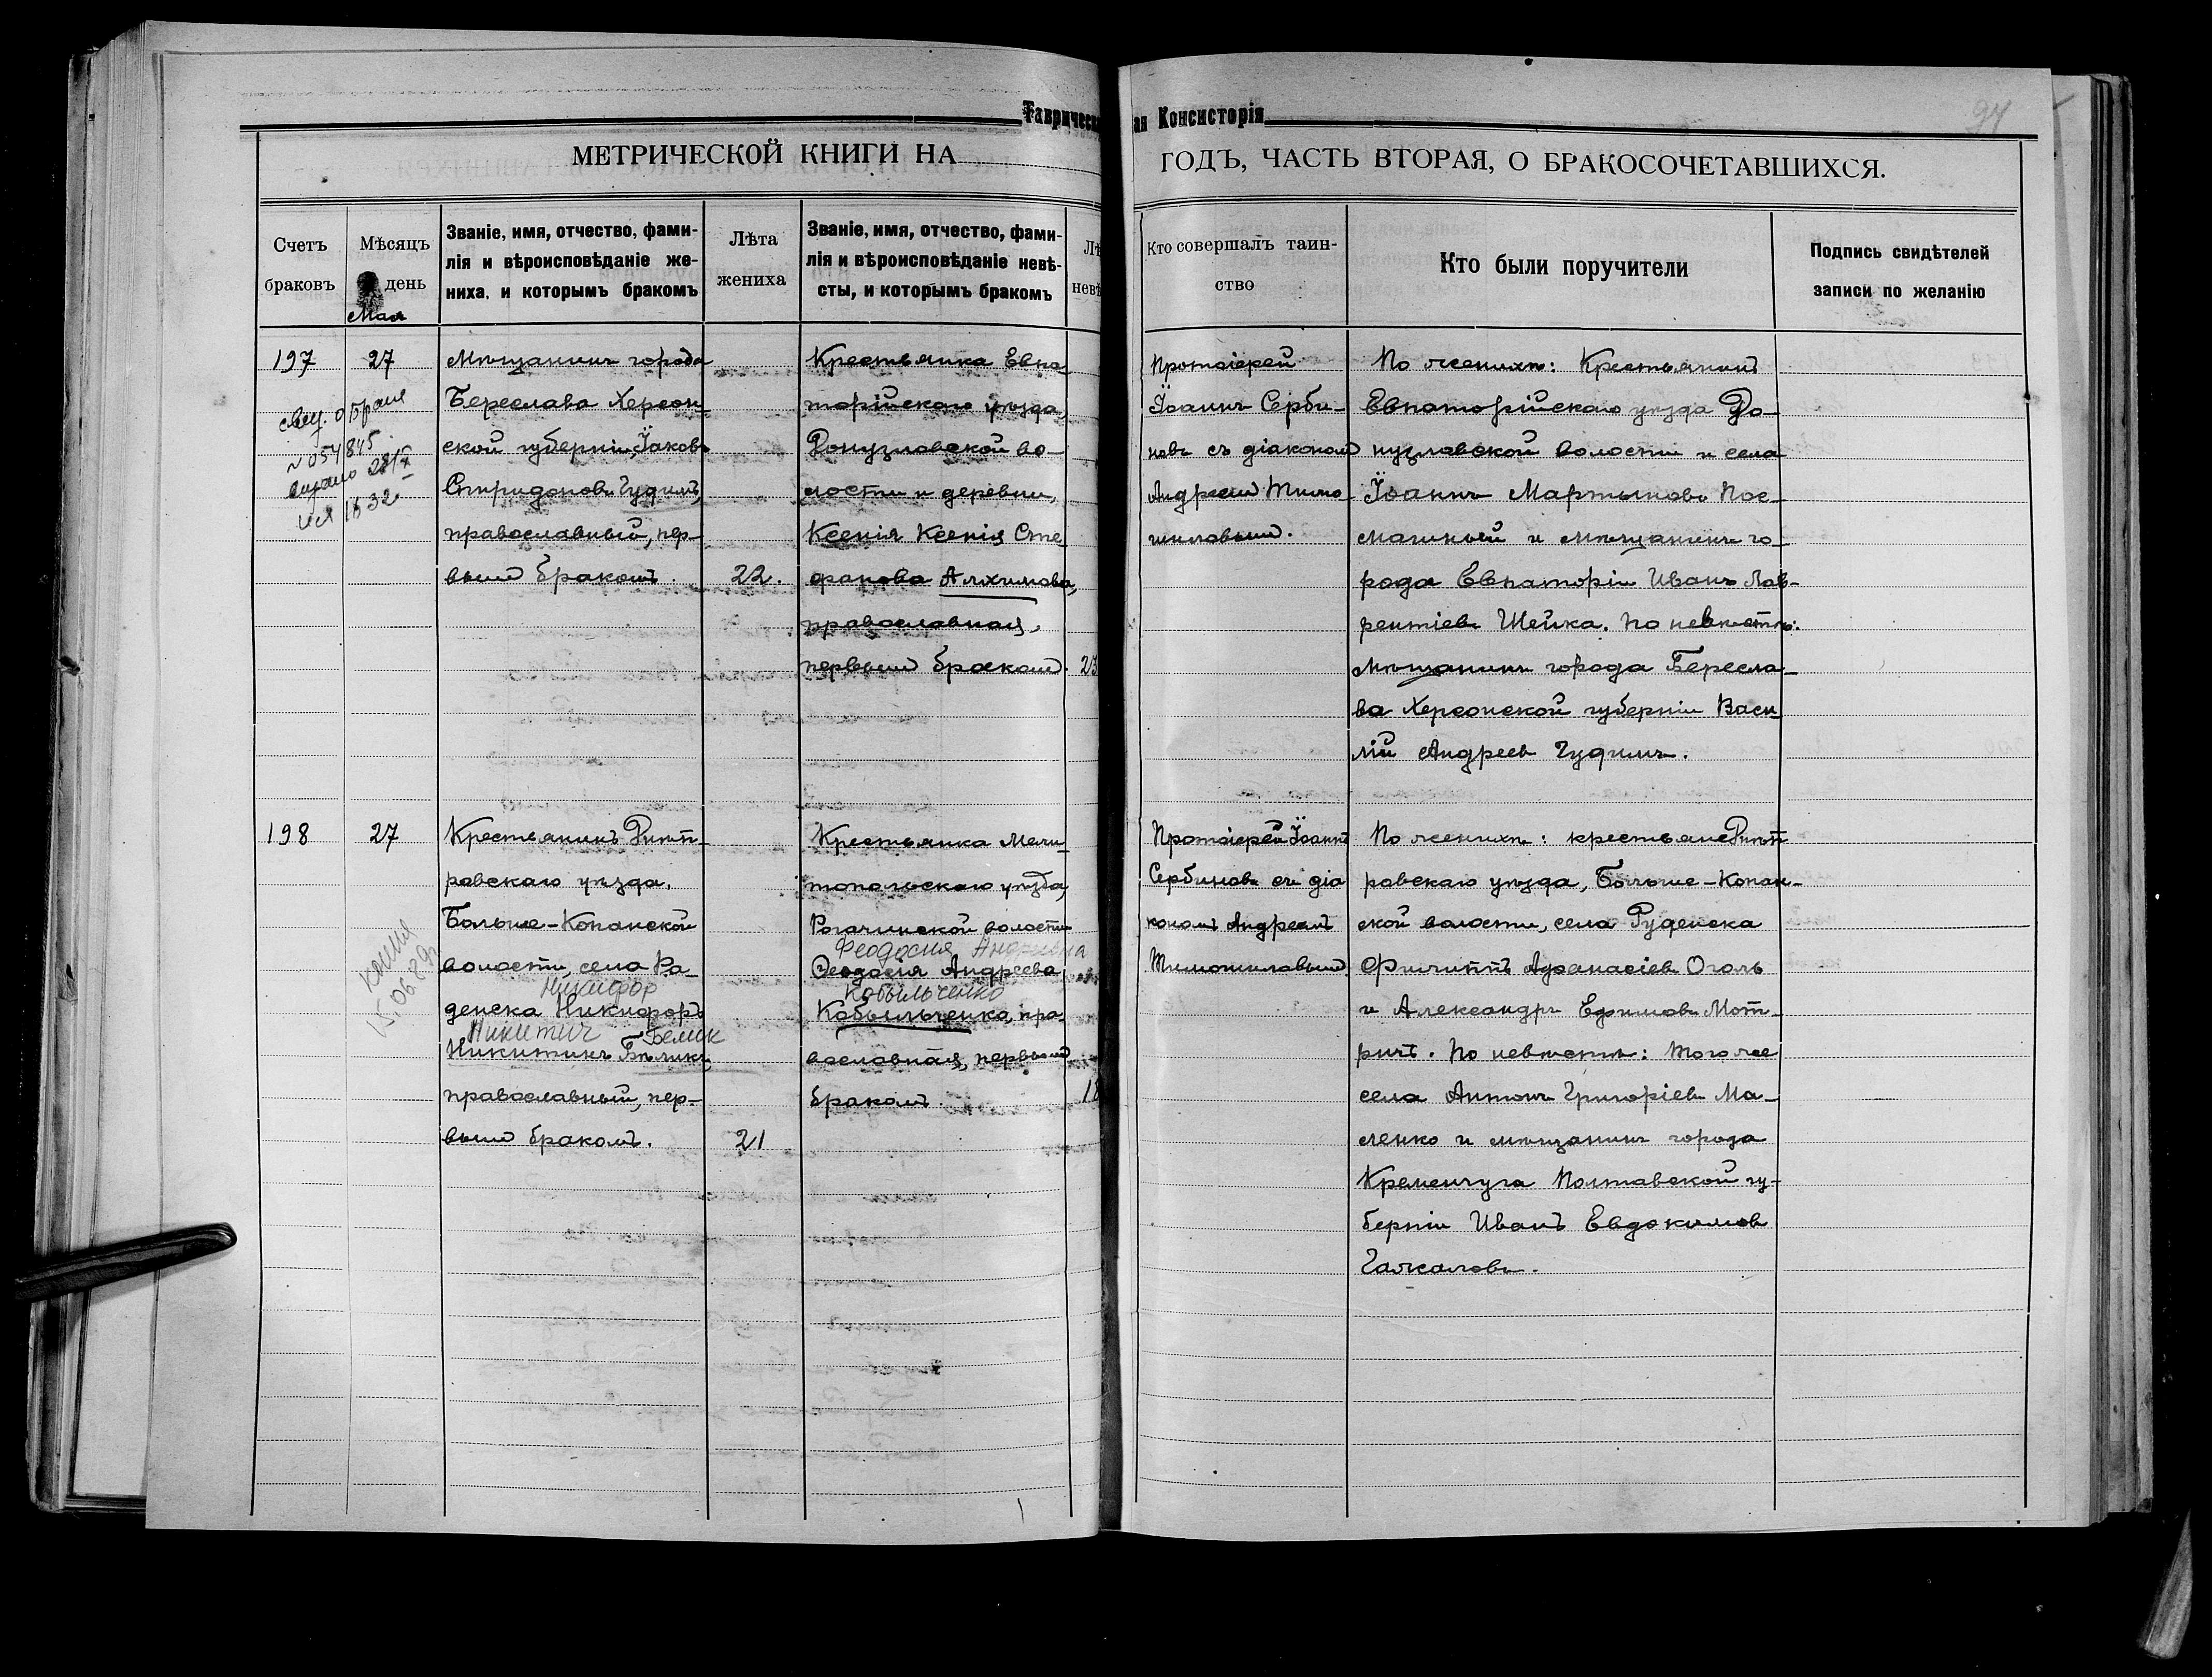 Таврическ
ая Консисторія
94
МЕТРИЧЕСКОЙ КНИГИ НА
ГОДЪ, ЧАСТЬ ВТОРАЯ, О БРАКОСОЧЕТАВШИХСЯ.
Счетъ
браковъ
Мѣсяцъ
день
Мая
Званіе, имя, отчество, фами-
лія и вѣроисповѣданіе же-
ниха, и которымъ бракомъ
Лѣта
жениха
Званіе, имя, отчество, фами-
лія и вѣроисповѣданіе невѣ-
сты, и которымъ бракомъ
Лѣ
невѣ
Кто совершалъ таин-
ство
Кто были поручители
Подпись свидѣтелей
записи по желанію
197
27
свид. о браке
054845
1632
Мѣщанинъ города
Береслава Херсон-
ской губерніи, Іаковъ
Спиридоновъ Гудимъ,
православный, пер-
вымъ бракомъ.
22.
Крестьянка Евпа-
торійскаго уѣзда,
Донузлавской во-
лости и деревни,
Ксенія Ксенія Сте-
фанова Алхимова,
православная,
первымъ бракомъ.
23
Протоіерей
Іоаннъ Серби-
новъ съ діакономъ
По женихѣ: Крестьянинъ
Евпаторійскаго уѣзда До-
нузлавской волости и села
Іоаннъ Мартыновъ Пос-
магный и мѣщанинъ го-
рода Евпаторіи Иванъ Лав-
рентіевъ Шейка. По невѣстѣ:
мѣщанинъ города Бересла-
ва Херсонской губерніи Васи-
лій Андреев Гудимъ.
198
27
копия
15.06.
Крестьянинъ Днѣп-
ровскаго уѣзда,
Больше-Копанской
волости, села Ра-
Никифор
денска Никифоръ
Никитич Белик
Никитинъ Бѣликъ,
православный, пер-
вымъ бракомъ.
21
Крестьянка Мели-
топольскаго уѣзда,
Рогачинской волости
Феодосия Андреевна
Ѳеодосія Андреева
Кобыльченко
Кобыльченко, пра-
вославная, первымъ
бракомъ
18
Протоіерей Іоаннъ
Сербиновъ съ діа
кономъ Андреемъ
По женихѣ: крестьяне Днѣп-
ровскаго уѣзда, Больше-Копан-
ской волости, села Руденска
Филиппъ Афанасіевъ Оголь
и Александръ Ефимовъ Мот-
ричъ. По невѣстѣ: того же
села Антонъ Григоріевъ Ма-
ленко и мѣщанинъ города
Кременчуга Полтавской гу-
берніи Иванъ Евдокимов
Галкаловъ.